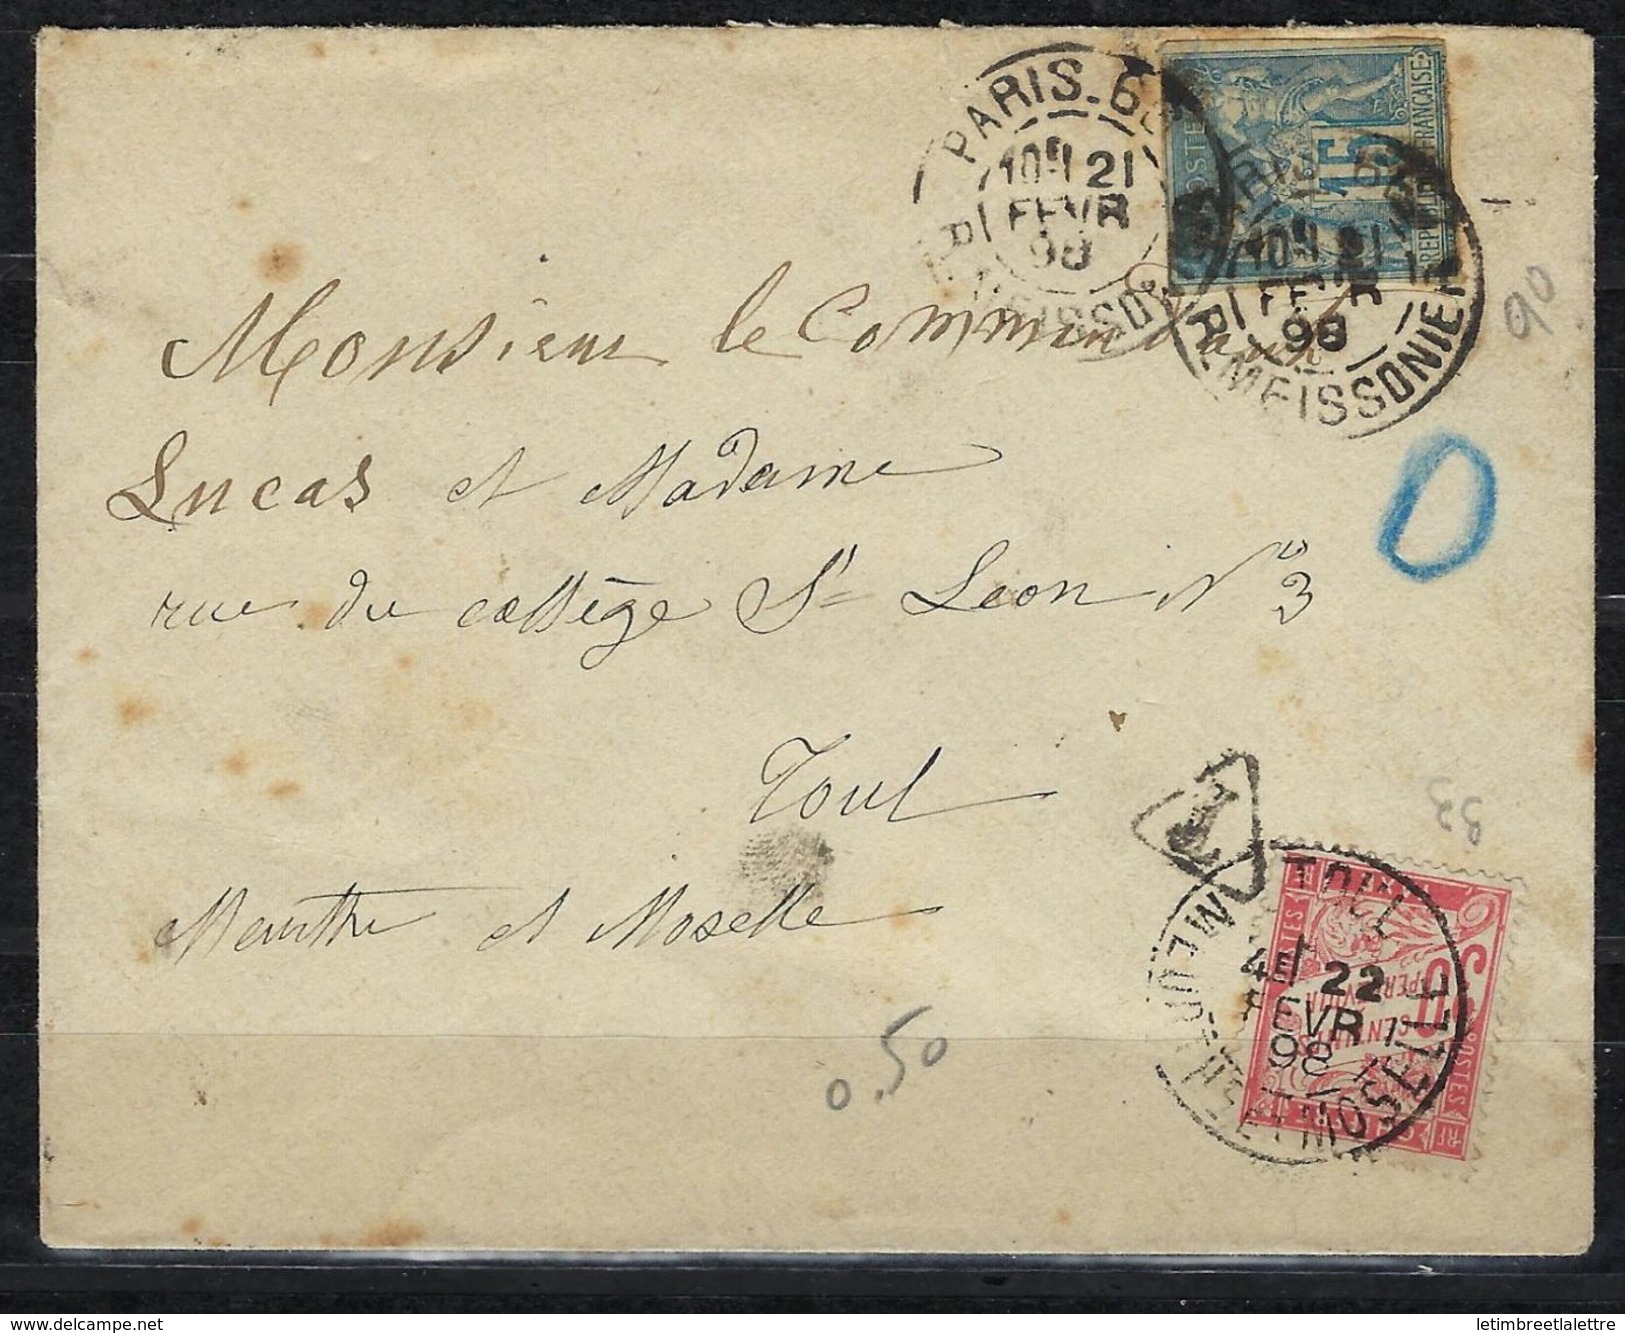 PARIS-6
10E 21
FEVR
98
R. MEISSO
POSTE
15
REPUBLIQUE FRANÇAISE
10E 21
FEVR
98
R. MEISSONIER
90
Monsieur le Commandant
Lucas et Madame
rue du collège St Leon No 3
Toul
Meurthe et Moselle
0.50
T
33
TOUL
4E 22
FEVR
98
MEURTHE ET MOSELLE
50
CENTIMES
A PERCEVOIR
POSTES
RF
letimbreetlalettre